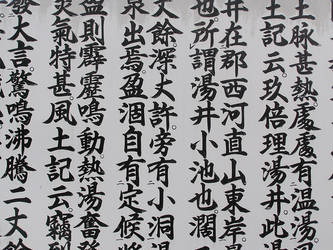 土脉甚熱。處處有温湯。風
土記云。玖倍理湯井。此湯
井在郡西河直山東岸
也。所謂湯井小池也。濶
丈餘。深丈許。旁有小洞湯
泉出焉。盈涸自有定候。將
盈則霹靂鳴動。熱湯奮發
炎氣特甚。風土記云。竊到
發大言。驚鳴沸騰二丈餘